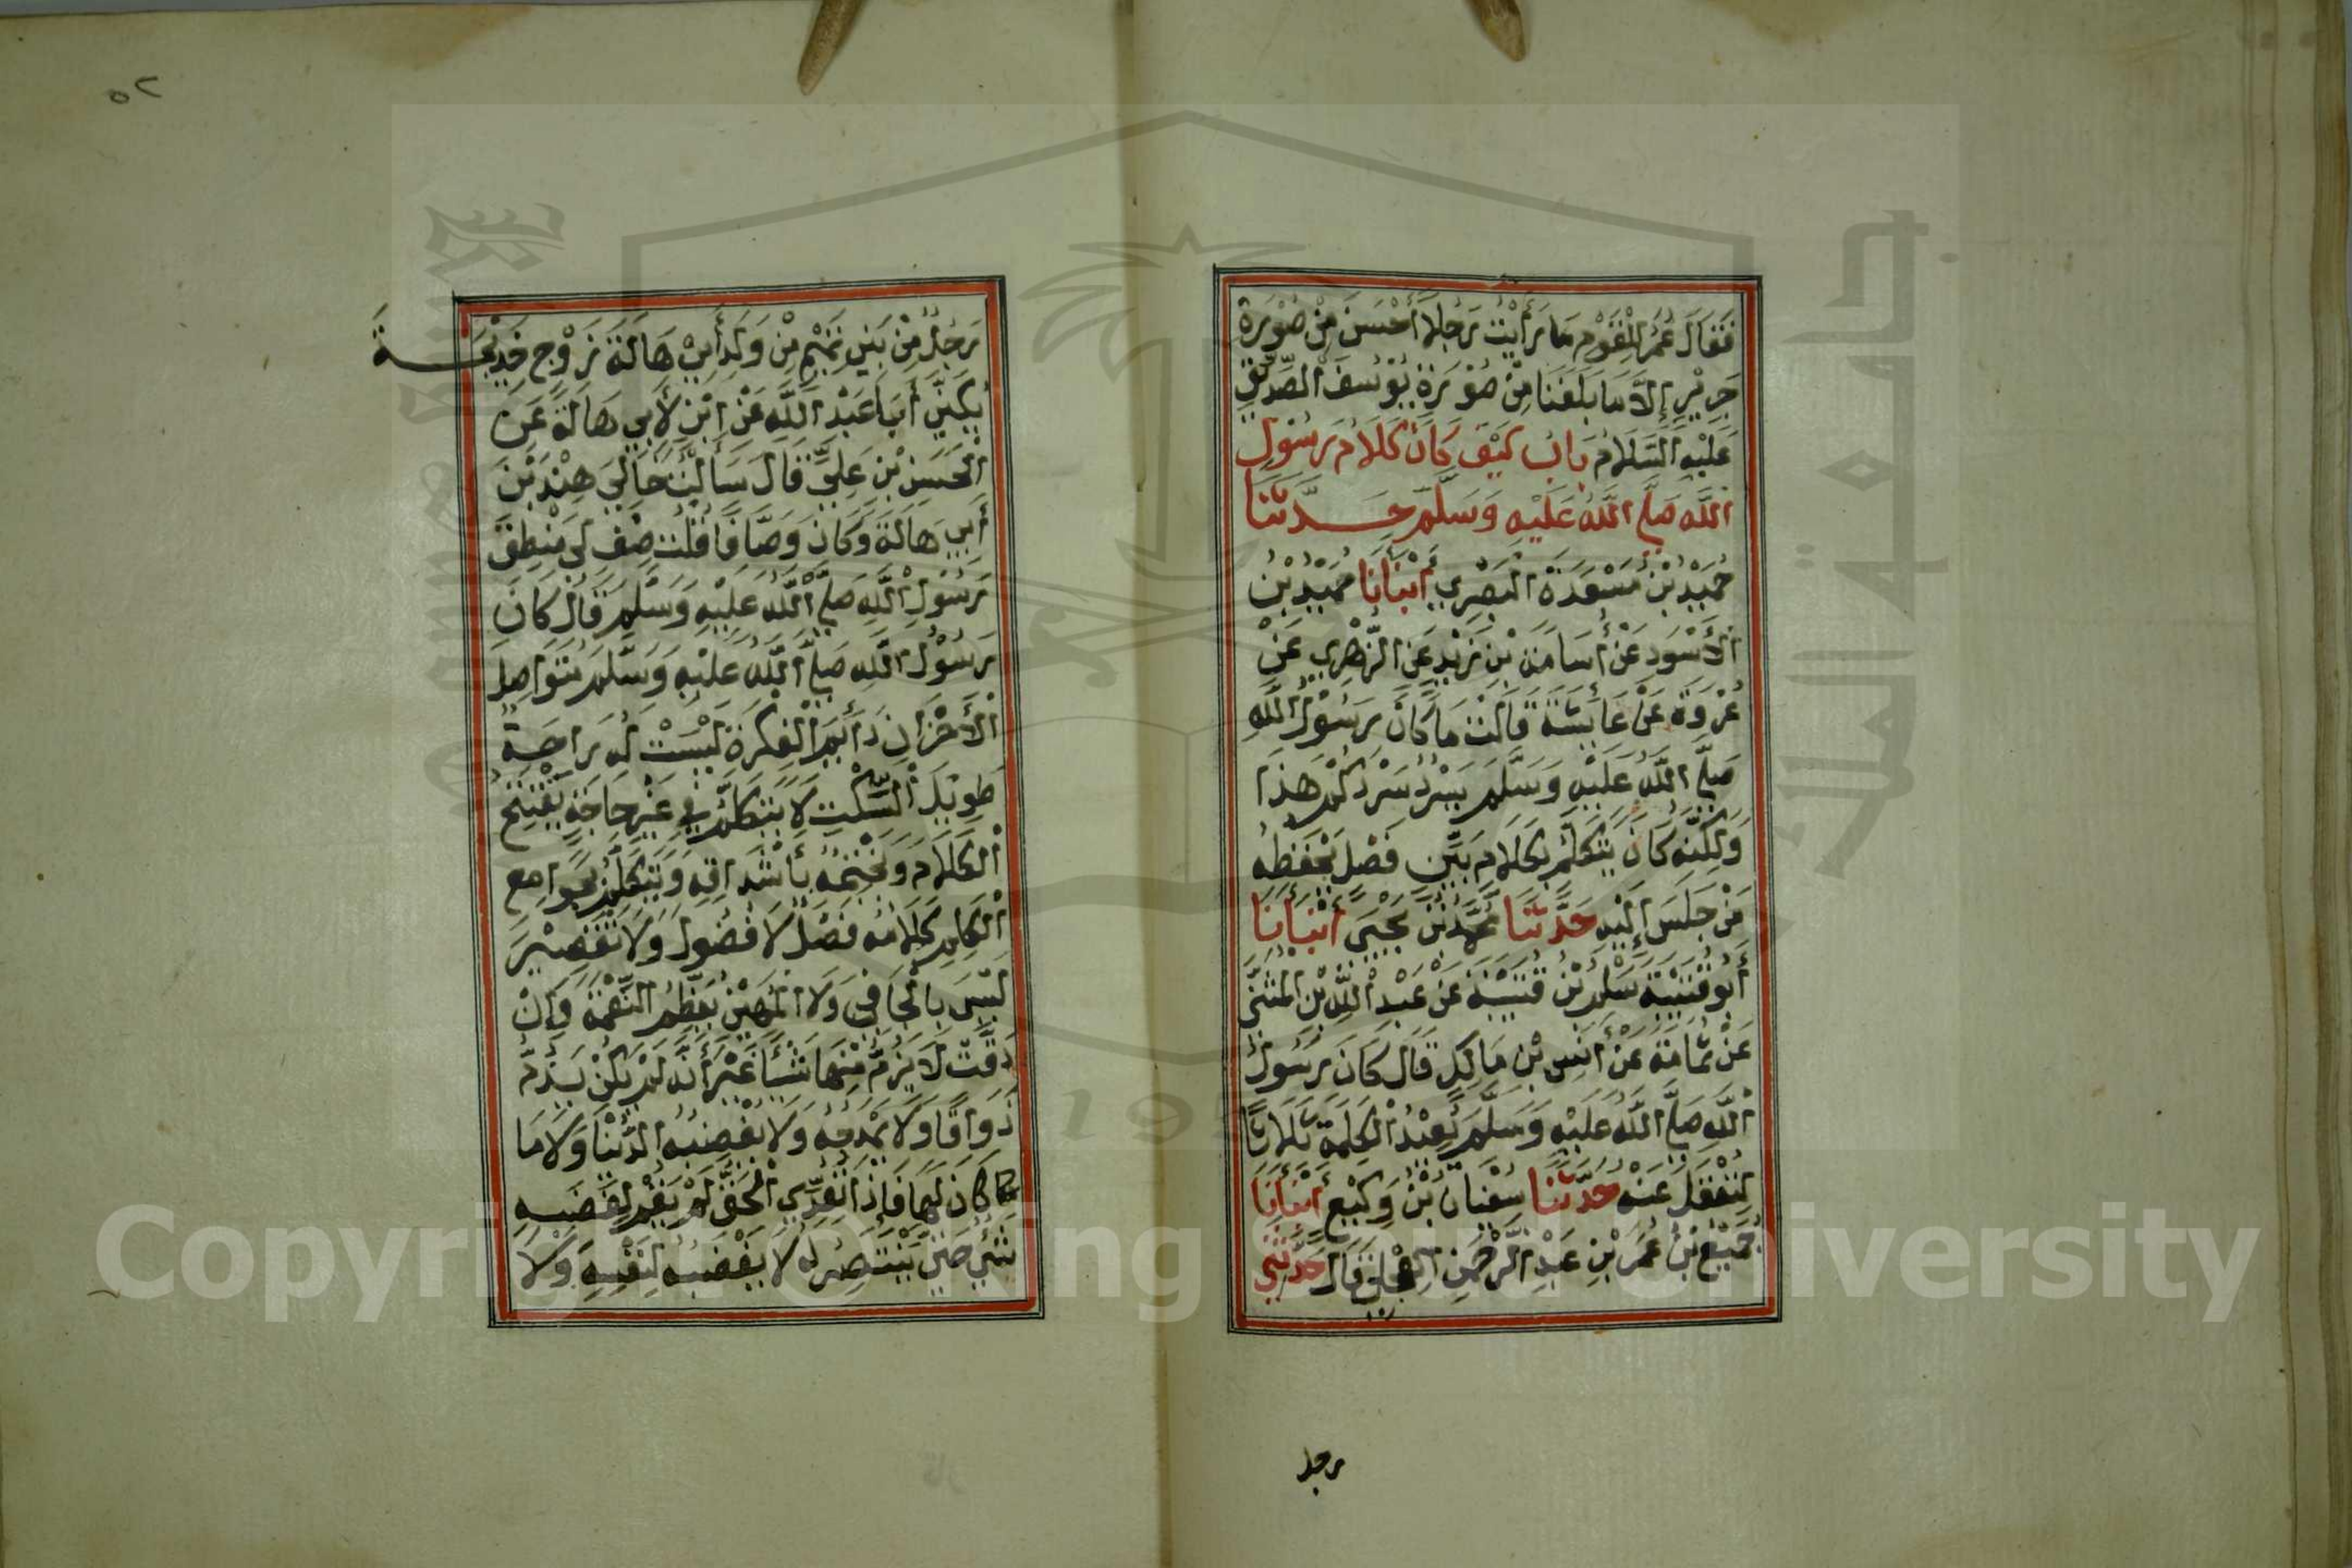 فَقَالَ عُمَرُ لِلْقَوْمِ مَا رَأَيْتُ رَجُلًا أَحْسَنَ مِنْ صُوْرَةِ
جَرِيْرٍ إِلَّا مَا بَلَغَنَا مِنْ صُوْرَةِ يُوْسُفَ الصِّدِّيْقِ
عَلَيْهِ السَّلَامُ بَابُ كَيْفَ كَانَ كَلَامُ رَسُوْلِ
اللّٰهِ صَلَّى اللّٰهُ عَلَيْهِ وَسَلَّمَ حَدَّثَنَا
حُمَيْدُ بْنُ مَسْعَدَةَ الْبَصْرِي أَنْبَأَنَا حُمَيْدُ بْنُ
الْأَسْوَدِ عَنْ أُسَامَةَ بْنِ زَيْدٍ عَنِ الزُّهْرِي عَنْ
عُرْوَةَ عَنْ عَايِشَةَ قَالَتْ مَا كَانَ رَسُوْلُ اللّٰهِ
صَلَّى اللّٰهُ عَلَيْهِ وَسَلَّمَ يَسْرُدُ سَرْدَكُمْ هَذَا
وَلَكِنَّهُ كَانَ يَتَكَلَّمُ بِكَلَامٍ بَيِّنٍ فَصْلٍ يَحْفَظُهُ
مَنْ جَلَسَ إِلَيْهِ حَدَّثَنَا مُحَمَّدُ بْنُ يَحْيَى أَنْبَأَنَا
أَبُو قُتَيْبَةَ سَلْمُ بْنُ قُتَيْبَةَ عَنْ عَبْدِ اللّٰهِ بْنِ الْمُثَنَّى
عَنْ ثُمَامَةَ عَنْ أَنَسِ بْنِ مَالِكٍ قَالَ كَانَ رَسُوْلُ
اللّٰهِ صَلَّى اللّٰهُ عَلَيْهِ وَسَلَّمَ يُعِيْدُ الْكَلِمَةَ ثَلَاثًا
لِتُعْقَلَ عَنْهُ حَدَّثَنَا سُفْيَانُ بْنُ وَكِيْعٍ أَنْبَأَنَا
جُمَيْعُ بْنُ عُمَرَ بْنِ عَبْدِ الرَّحْمٰنِ الْعِجْلِيُّ قَالَ حَدَّثَنِي
رجل
٥٢
رَجُلٌ مِنْ بَنِي تَمِيْمٍ مِنْ وَلَدِ أَبِيْ هَالَةَ زَوْجِ خَدِيْجَةَ
يُكَنَّى أَبَا عَبْدِ اللّٰهِ عَنْ ابْنٍ لِأَبِي هَالَةَ عَنِ
الْحَسَنِ بْنِ عَلِيٍّ قَالَ سَأَلْتُ خَالِيَ هِنْدَ بْنَ
أَبِي هَالَةَ وَكَانَ وَصَّافًا قُلْتُ صِفْ لِي مَنْطِقَ
رَسُوْلِ اللّٰهِ صَلَّى اللّٰهُ عَلَيْهِ وَسَلَّمَ قَالَ كَانَ
رَسُوْلُ اللّٰهِ صَلَّى اللّٰهُ عَلَيْهِ وَسَلَّمَ مُتَوَاصِلَ
الْأَحْزَانِ دَائِمَ الْفِكْرَةِ لَيْسَتْ لَهُ رَاحَةٌ
طَوِيْلَ السَّكْتِ لَا يَتَكَلَّمُ فِي غَيْرِ حَاجَةٍ يَفْتَتِحُ
الْكَلَامَ وَيَخْتِمُهُ بِأَشْدَاقِهِ وَيَتَكَلَّمُ بِجَوَامِعِ
الْكَلِمِ كَلَامُهُ فَصْلٌ لَا فُضُولَ وَلَا تَقْصِيْرَ
لَيْسَ بِالْجَافِي وَلَا الْمُهِيْنِ يُعَظِّمُ النِّعْمَةَ وَإِنْ
دَقَّتْ لَا يَذُمُّ مِنْهَا شَيْئًا غَيْرَ أَنَّهُ لَمْ يَكُنْ يَذُمُّ
ذَوَاقًا وَلَا يَمْدَحُهُ وَلَا تُغْضِبُهُ الدُّنْيَا وَلَا مَا
كَانَ لَهَا فَإِذَا تُعُدِّيَ الْحَقُّ لَمْ يَقُمْ لِغَضَبِهِ
شَيْءٌ حَتَّى يَنْتَصِرَ لَهُ لَا يَغْضَبُ لِنَفْسِهِ وَلَا
Copyright © King Saud University
جامعة الملك سعود